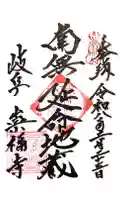 奉拝 令和八年二月二十二日
南無延命地蔵
岐阜 崇福寺